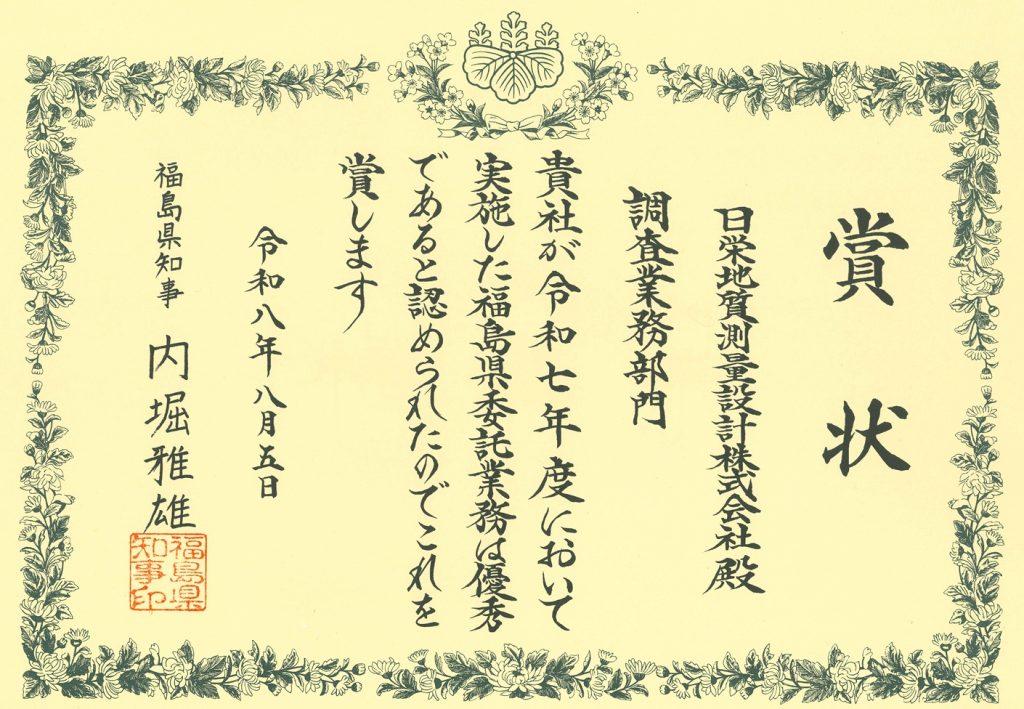 賞状
日栄地質測量設計株式会社殿
調査業務部門
貴社が令和七年度において
実施した福島県委託業務は優秀
であると認められたのでこれを
賞します
令和八年八月五日
福島県知事 内堀雅雄
福島県
知事印